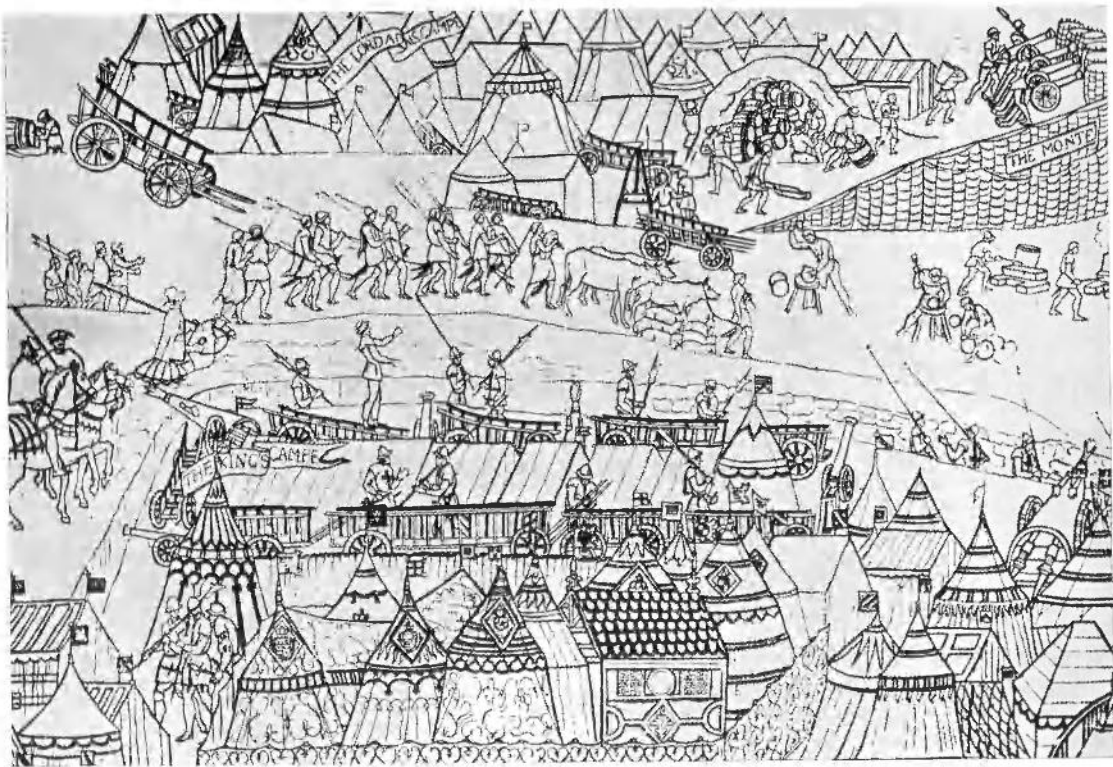 THE LORD ADS CAMPE
THE MONTE
THE KINGS CAMPE